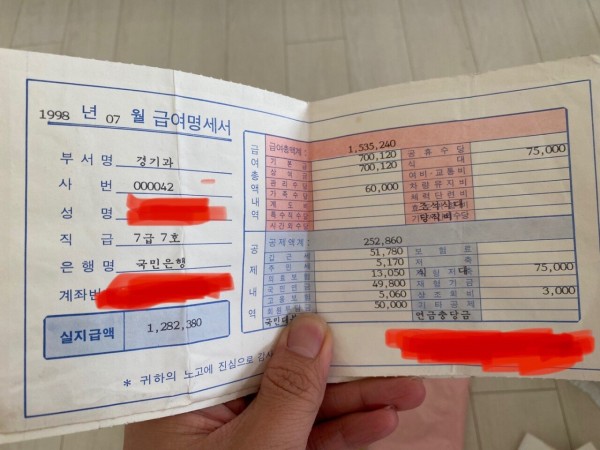 1998 년 07 월 급여명세서
부 서 명 경기과
사 번 000042
성 명
직 급 7급 7호
은 행 명 국민은행
계좌번
실지급액 1,282,380
* 귀하의 노고에 진심으로 감사
급여총액내역
급여총액계 : 1,535,240
기 본 700,120 공 휴 수 당 75,000
상 여 700,120 식 대
직 무 수 당 여비·교통비
가 족 수 당 60,000 차량유지비
체력단련비
조식식대
특수직수당 당직비
공제내역
공제액계 : 252,860
갑 근 세 51,780 보 험 료
주 민 세 5,170 저 축
의 료 보 험 13,050 식 대 75,000
국 민 연 금 49,800 재 형 기 금
고 용 보 험 5,060 상 조 회 비 3,000
50,000 기 타 공 제
국민 연금충당금